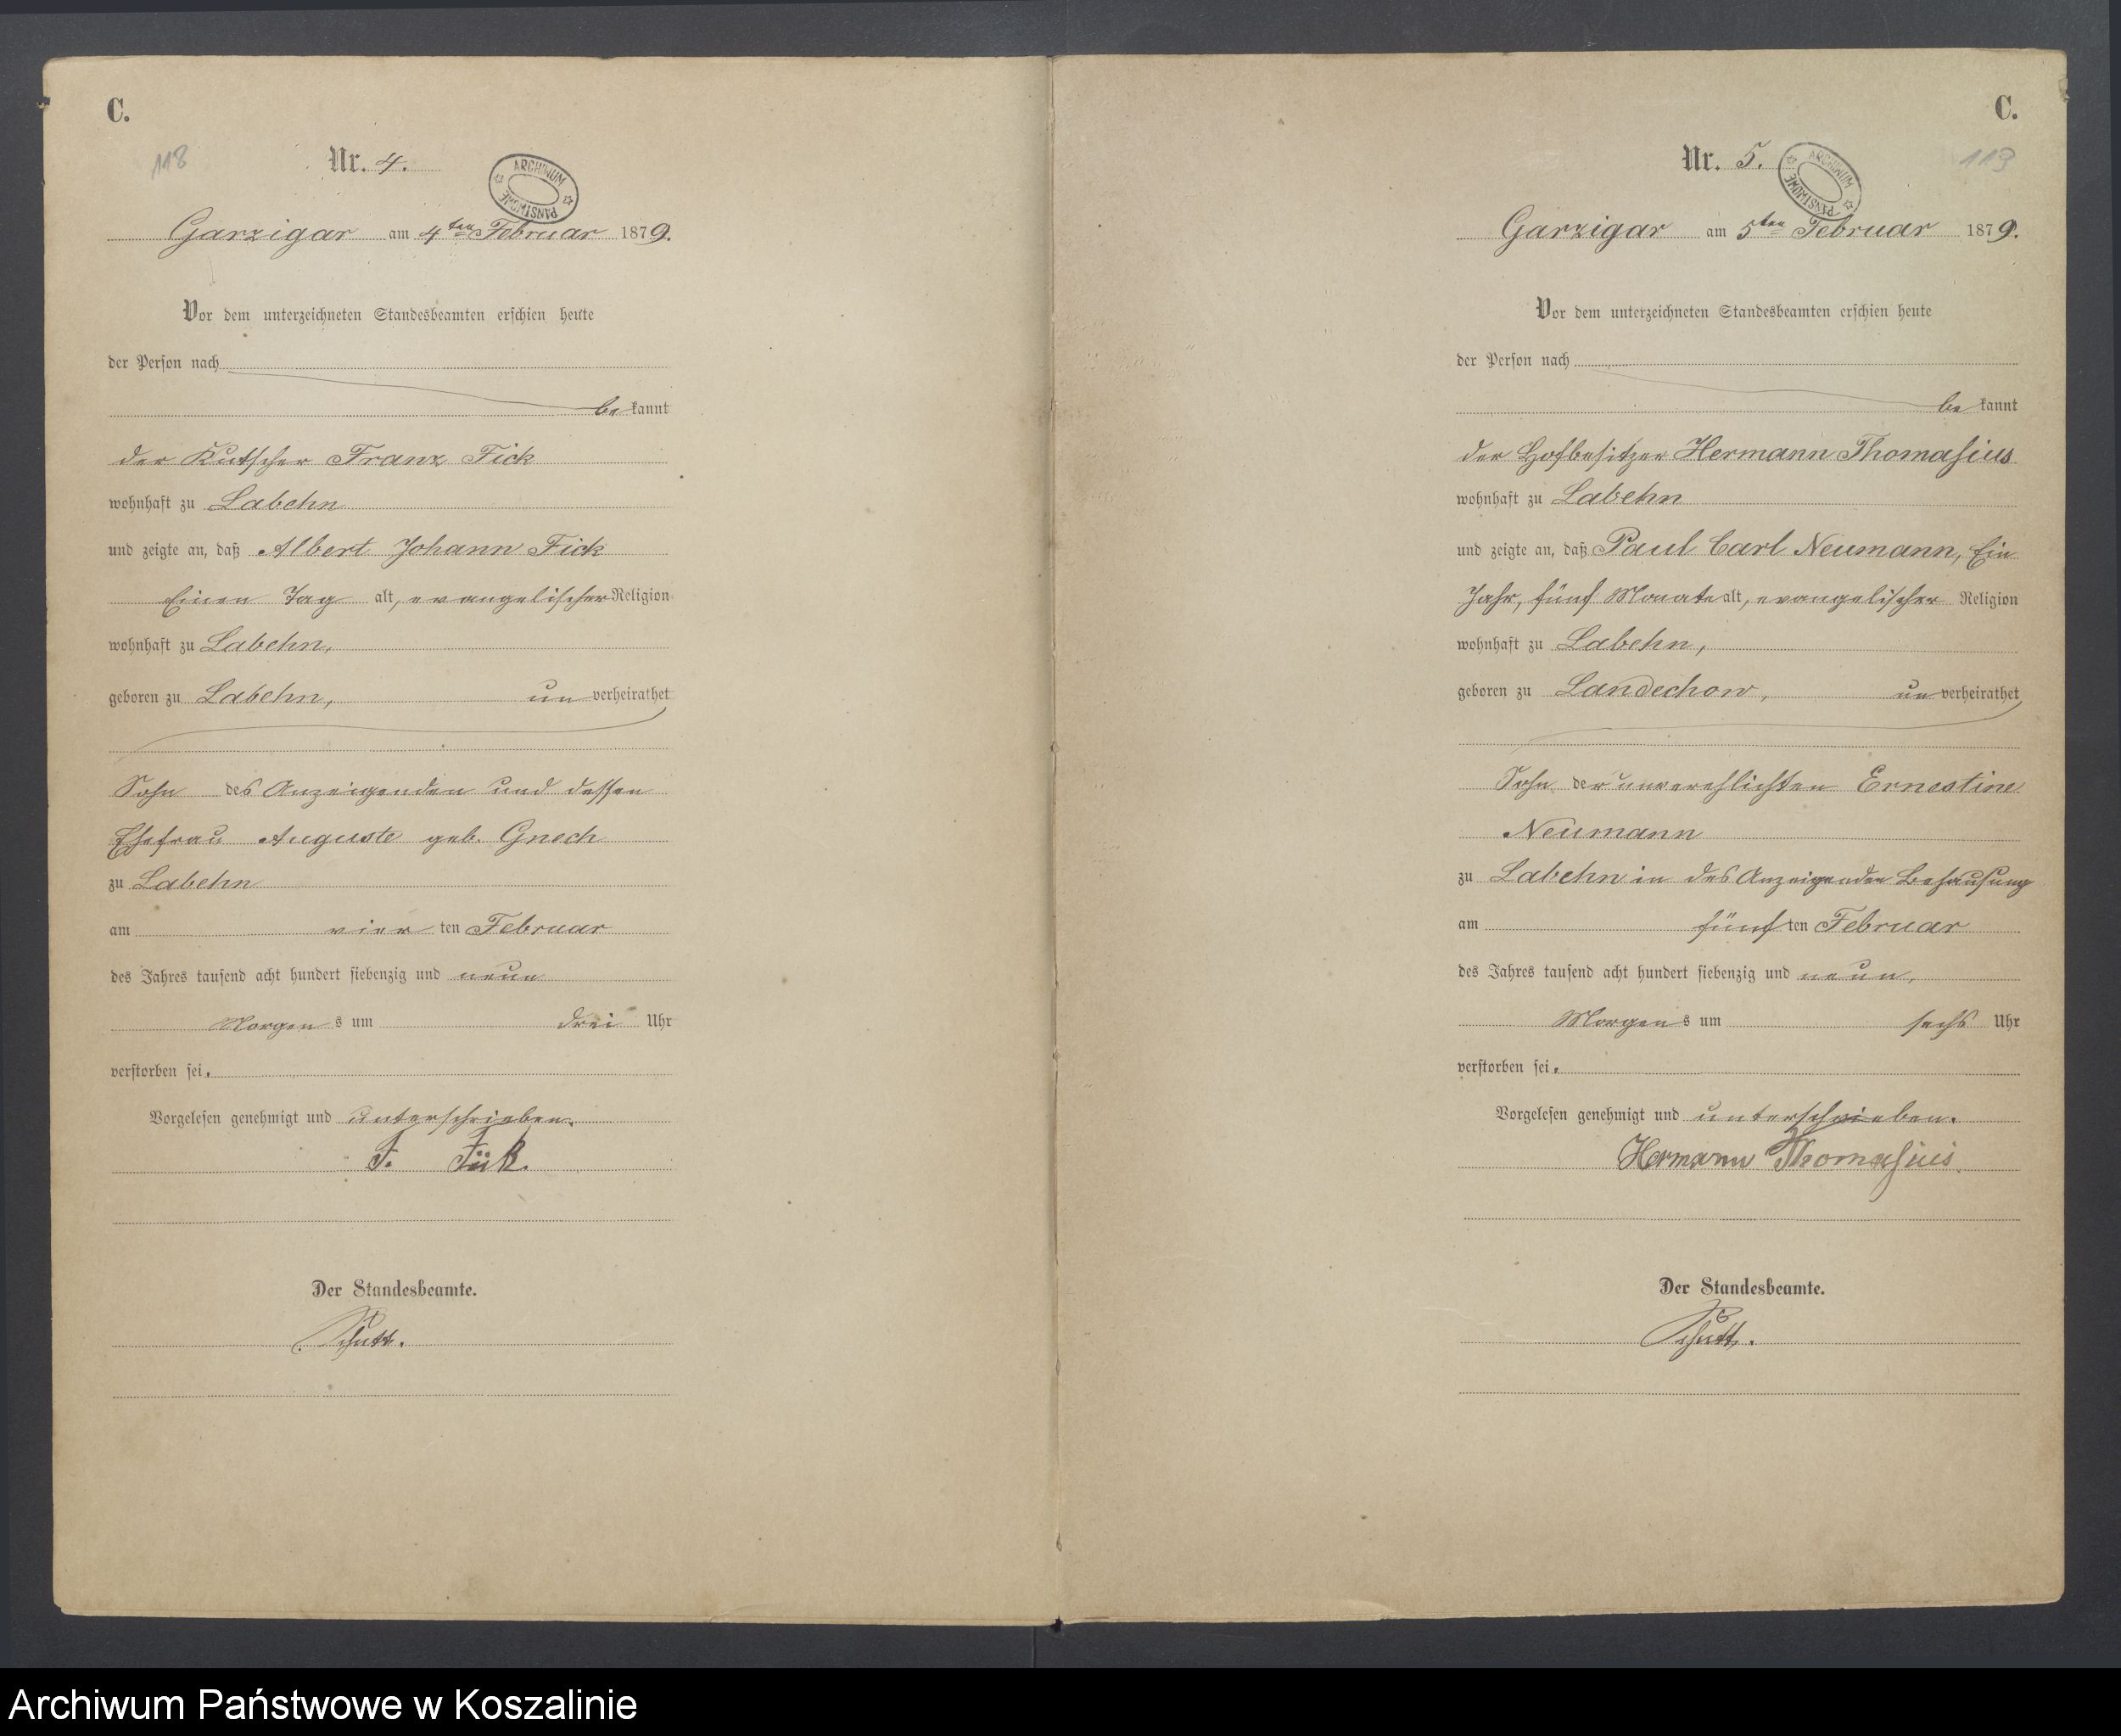 C.
118
Nr. 4.
ARCHIWUM PAŃSTWOWE
Garzigar am 4ten Februar 1879.
Vor dem unterzeichneten Standesbeamten erschien heute
der Person nach
bekannt
der Kutscher Franz Fick
wohnhaft zu Labehn
und zeigte an, daß Albert Johann Fick
Einen Tag alt, evangelischer Religion
wohnhaft zu Labehn,
geboren zu Labehn, unverheirathet
Sohn des Anzeigenden und dessen
Ehefrau Auguste geb. Gnech
zu Labehn
am vierten Februar
des Jahres tausend acht hundert siebenzig und neun
Morgens um drei Uhr
verstorben sei.
Vorgelesen genehmigt und unterschrieben.
F. Fick.
Der Standesbeamte.
C.
119
Nr. 5.
ARCHIWUM PAŃSTWOWE
Garzigar am 5ten Februar 1879.
Vor dem unterzeichneten Standesbeamten erschien heute
der Person nach
bekannt
der Hofbesitzer Hermann Thomasius
wohnhaft zu Labehn
und zeigte an, daß Paul Carl Neumann, Ein
Jahr, fünf Monate alt, evangelischer Religion
wohnhaft zu Labehn,
geboren zu Landechow, unverheirathet
Sohn der unverehlichten Ernestine
Neumann
zu Labehn in des Anzeigenden Behausung
am fünften Februar
des Jahres tausend acht hundert siebenzig und neun,
Morgens um sechs Uhr
verstorben sei.
Vorgelesen genehmigt und unterschrieben.
Hermann Thomasius.
Der Standesbeamte.
Archiwum Państwowe w Koszalinie